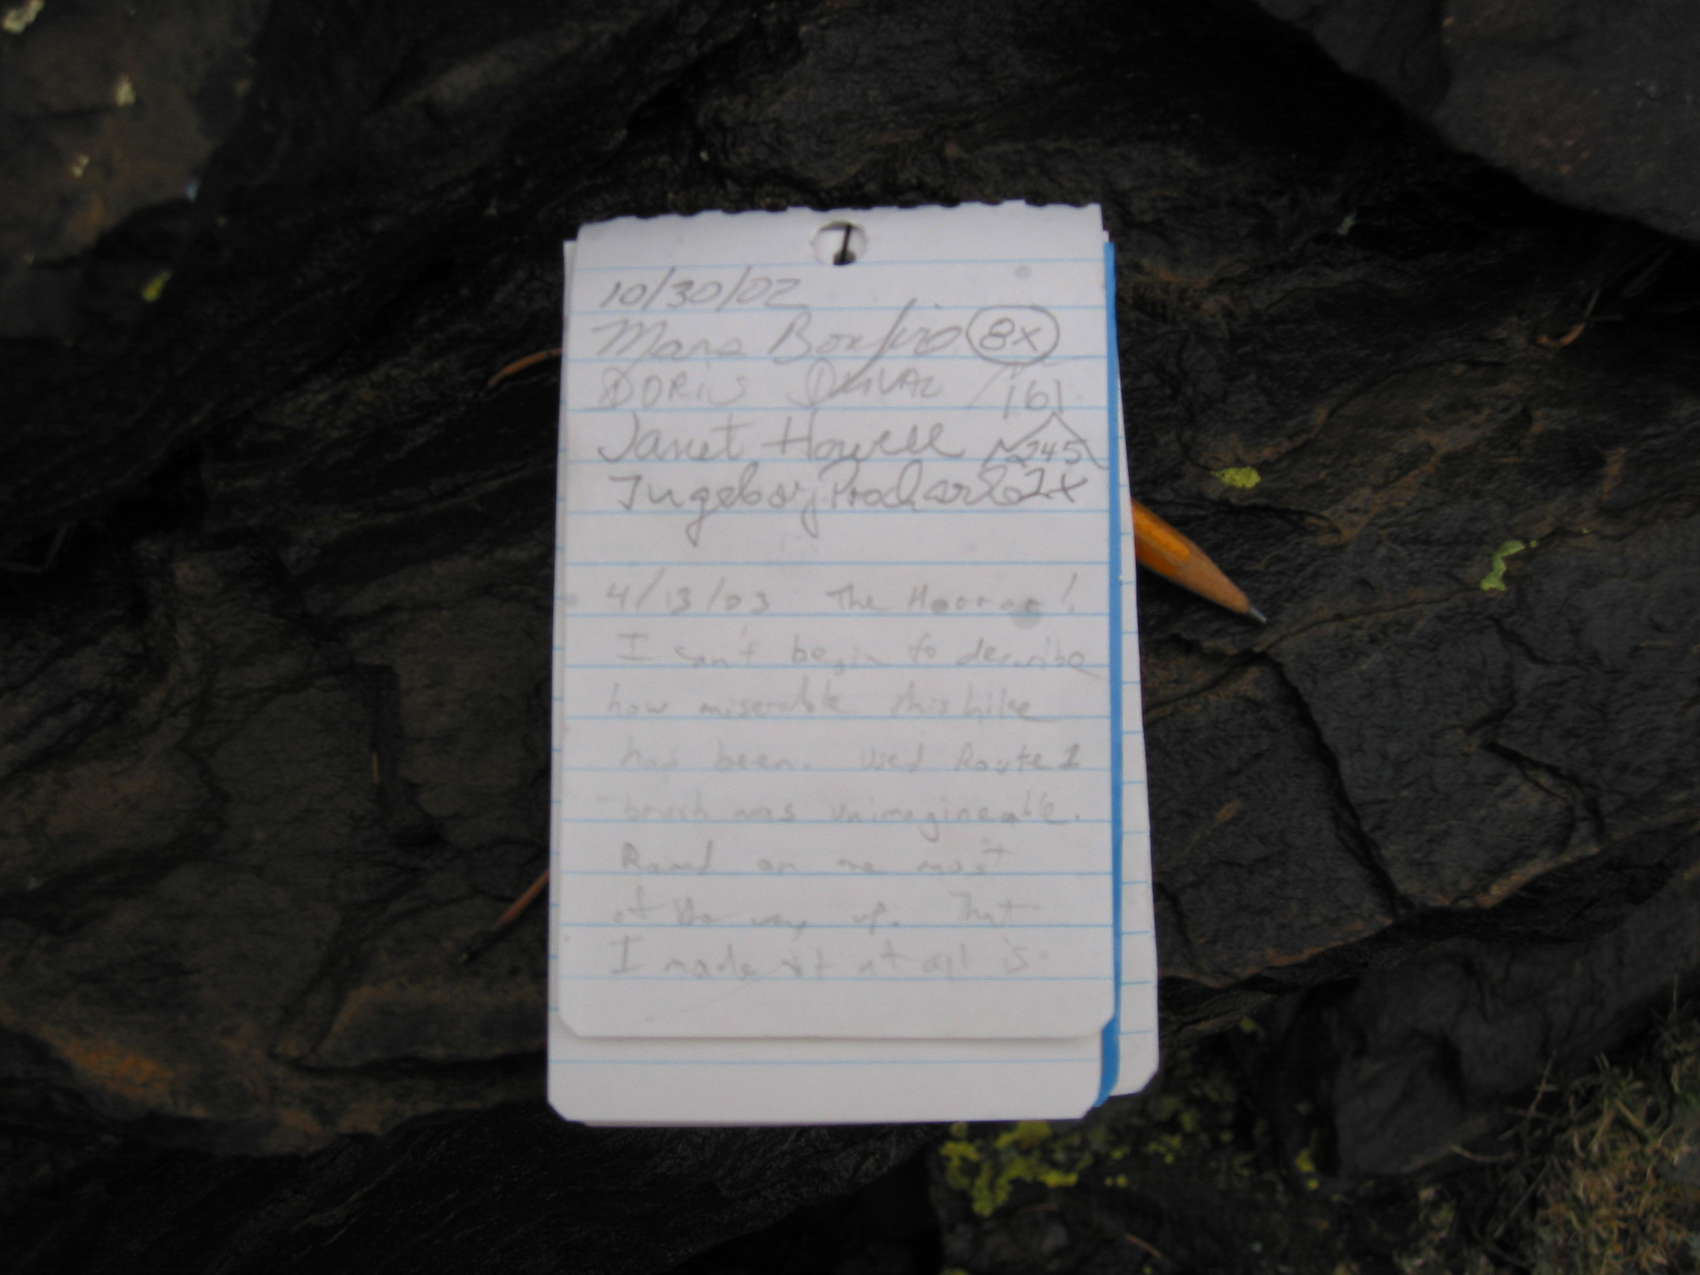 10/30/02
8X
DORIS DUVAL 161
Janet Howell 245
Ingeborg 2X
4/13/03 The Horror!
I can't begin to describe
how miserable this hike
has been. Used Route 1
brush was unimagineable.
Rained on me most
of the way up. That
I made it at all is